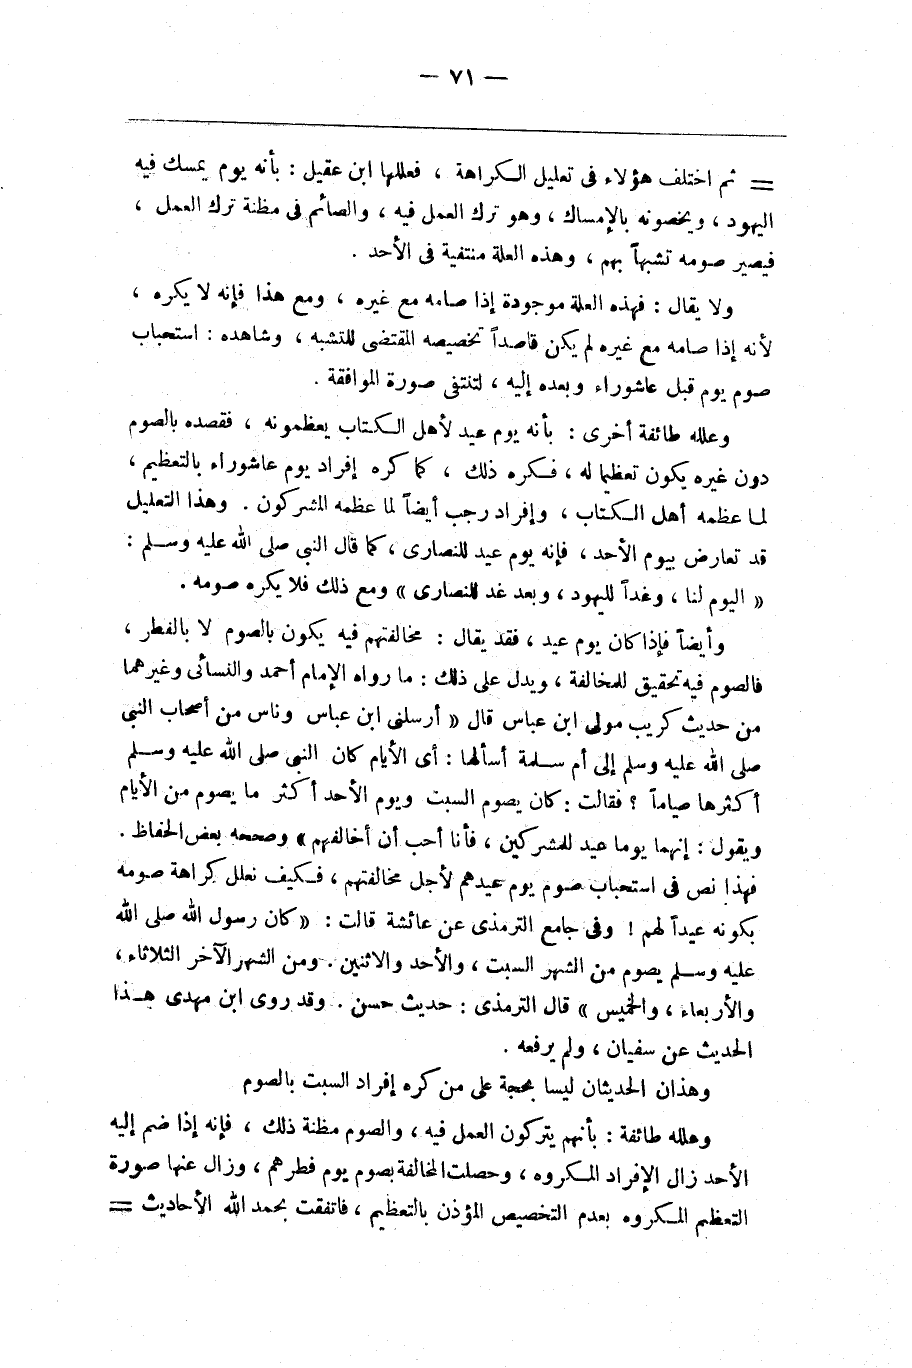 — ٧١ —
= ثم اختلف هؤلاء فى تعليل الكراهة ، فعللها ابن عقيل : بأنه يوم يمسك فيه
اليهود ، ويخصونه بالإمساك ، وهو ترك العمل فيه ، والصائم فى مظنة ترك العمل ،
فيصير صومه تشبهاً بهم ، وهذه العلة منتفية فى الأحد .
ولا يقال : فهذه العلة موجودة إذا صامه مع غيره ، ومع هذا فإنه لا يكره ،
لأنه إذا صامه مع غيره لم يكن قاصداً تخصيصه المقتضى للتشبه ، وشاهده : استحباب
صوم يوم قبل عاشوراء وبعده إليه ، لتنتفى صورة الموافقة .
وعلله طائفة أخرى : بأنه يوم عيد لأهل الكتاب يعظمونه ، فقصده بالصوم
دون غيره يكون تعظيما له ، فكره ذلك ، كما كره إفراد يوم عاشوراء بالتعظيم ،
لما عظمه أهل الكتاب ، وإفراد رجب أيضاً لما عظمه المشركون . وهذا التعليل
قد تعارض بيوم الأحد ، فإنه يوم عيد للنصارى ، كما قال النبى صلى الله عليه وسلم :
« اليوم لنا ، وغداً لليهود ، وبعد غد للنصارى » ومع ذلك فلا يكره صومه .
وأيضاً فإذا كان يوم عيد ، فقد يقال : مخالفتهم فيه يكون بالصوم لا بالفطر ،
فالصوم فيه تحقيق للمخالفة ، ويدل على ذلك : ما رواه الإمام أحمد والنسائى وغيرهما
من حديث كريب مولى ابن عباس قال « أرسلنى ابن عباس وناس من أصحاب النبى
صلى الله عليه وسلم إلى أم سلمة أسألها : أى الأيام كان النبى صلى الله عليه وسلم
أكثرها صياماً ؟ فقالت : كان يصوم السبت ويوم الأحد أكثر ما يصوم من الأيام
ويقول : إنهما يوما عيد للمشركين ، فأنا أحب أن أخالفهم » وصححه بعض الحفاظ .
فهذا نص فى استحباب صوم يوم عيدهم لأجل مخالفتهم ، فكيف نعلل كراهة صومه
بكونه عيداً لهم ! وفى جامع الترمذى عن عائشة قالت : « كان رسول الله صلى الله
عليه وسلم يصوم من الشهر السبت ، والأحد والاثنين . ومن الشهر الآخر الثلاثاء ،
والأربعاء ، والخميس » قال الترمذى : حديث حسن . وقد روى ابن مهدى هذا
الحديث عن سفيان ، ولم يرفعه .
وهذان الحديثان ليسا بحجة على من كره إفراد السبت بالصوم
وعلله طائفة : بأنهم يتركون العمل فيه ، والصوم مظنة ذلك ، فإنه إذا ضم إليه
الأحد زال الإفراد المكروه ، وحصلت المخالفة بصوم يوم فطرهم ، وزال عنها صورة
التعظيم المكروه بعدم التخصيص المؤذن بالتعظيم ، فاتفقت بحمد الله الأحاديث =